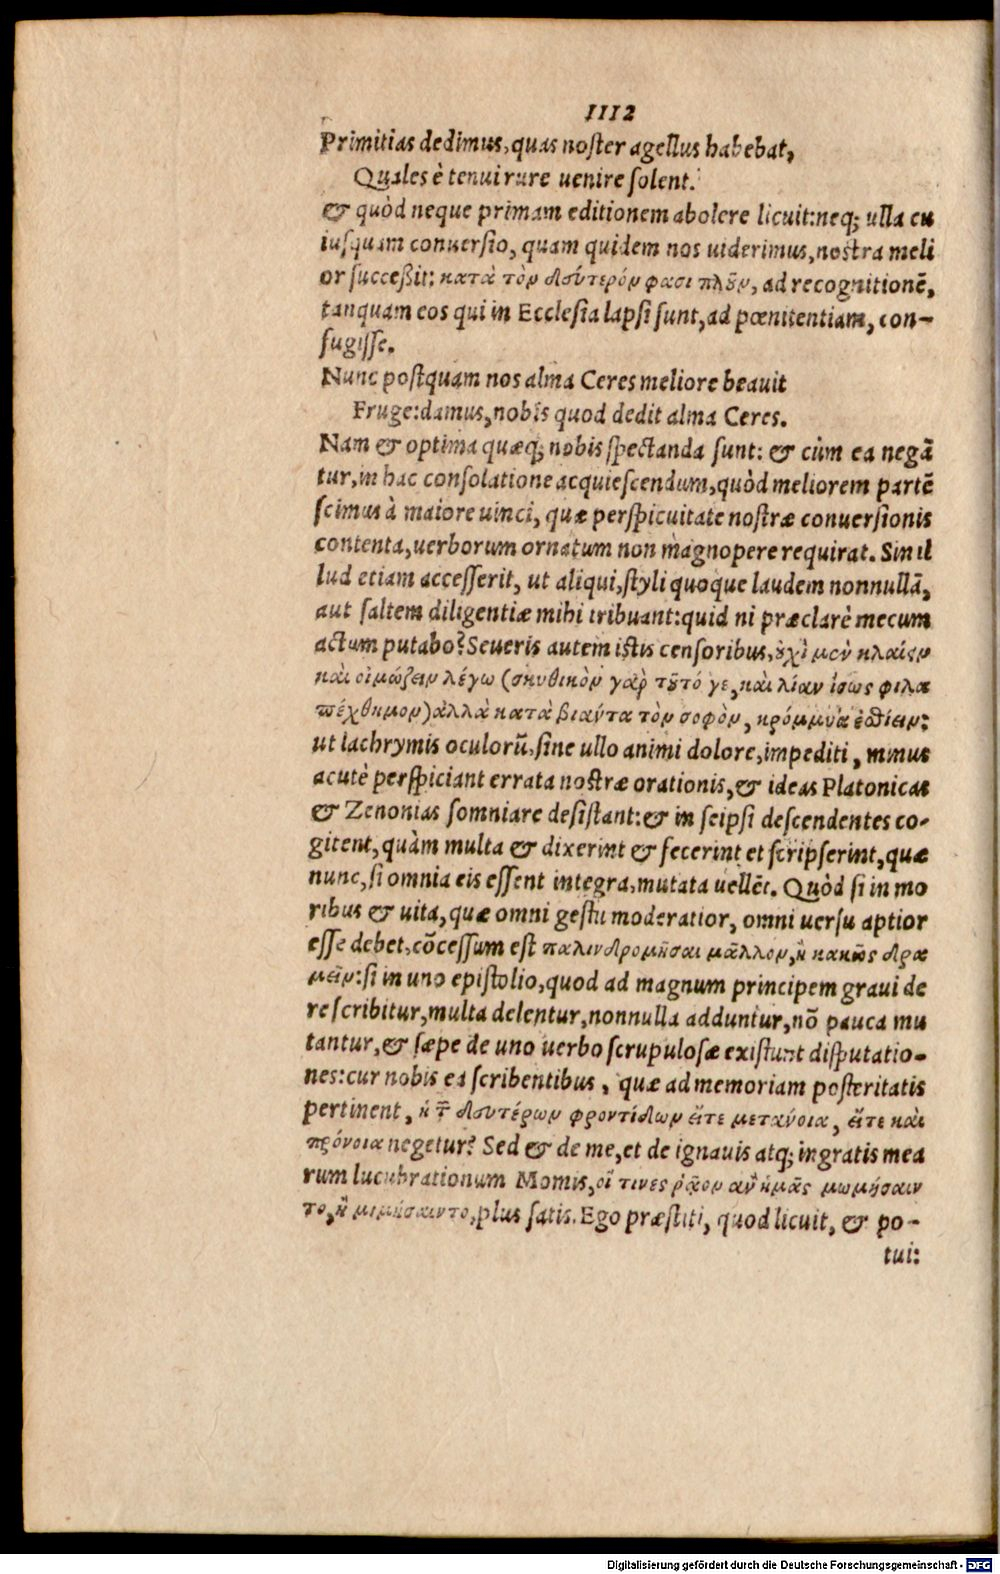 1112
Primitias dedimus, quas noster agellus habebat,
Quales è tenui rure uenire solent.
& quòd neque primam editionem abolere licuit: neq; ulla cu
iusquam conuersio, quam quidem nos uiderimus, nostra meli
or succeßit: κατὰ τὸν δεύτερόν φασι πλοῦν, ad recognitionē,
tanquam eos qui in Ecclesia lapsi sunt, ad pœnitentiam, con-
fugisse.
Nunc postquam nos alma Ceres meliore beauit
Fruge: damus, nobis quod dedit alma Ceres.
Nam & optima quæq; nobis spectanda sunt: & cùm ea negā
tur, in hac consolatione acquiescendum, quòd meliorem partē
scimus à maiore uinci, quæ perspicuitate nostræ conuersionis
contenta, uerborum ornatum non magnopere requirat. Sin il
lud etiam accesserit, ut aliqui, styli quoque laudem nonnullā,
aut saltem diligentiæ mihi tribuant: quid ni præclarè mecum
actum putabo? Seueris autem istis censoribus, οὐχὶ μὲν κλαίειν
καὶ οἰμώζειν λέγω (σκυθικὸν γὰρ τοῦτό γε, καὶ λίαν ἴσως φιλα
πέχθημον) ἀλλὰ κατὰ βίαντα τὸν σοφὸν, κρόμμυα ἐσθίειν:
ut lachrymis oculorū, sine ullo animi dolore, impediti, minus
acutè perspiciant errata nostræ orationis, & ideas Platonicas
& Zenonias somniare desistant: & in seipsi descendentes co-
gitent, quàm multa & dixerint & fecerint et scripserint, quæ
nunc, si omnia eis essent integra, mutata uellēt. Quòd si in mo
ribus & uita, quæ omni gestu moderatior, omni uersu aptior
esse debet, cōcessum est παλινδρομῆσαι μᾶλλον, ἢ κακῶς δρα
μεῖν: si in uno epistolio, quod ad magnum principem graui de
re scribitur, multa delentur, nonnulla adduntur, nō pauca mu
tantur, & sæpe de uno uerbo scrupulosæ existunt disputatio-
nes: cur nobis ea scribentibus, quæ ad memoriam posteritatis
pertinent, ἡ τ̄ δευτέρων φροντίδων εἴτε μετάνοια, εἴτε καὶ
πρόνοια negetur? Sed & de me, et de ignauis atq; ingratis mea
rum lucubrationum Momis, οἵ τινες ῥᾷον ἂν ἡμᾶς μωμήσαιν
το, ἢ μιμήσαιντο, plus satis. Ego præstiti, quod licuit, & po-
tui:
Digitalisierung gefördert durch die Deutsche Forschungsgemeinschaft - DFG